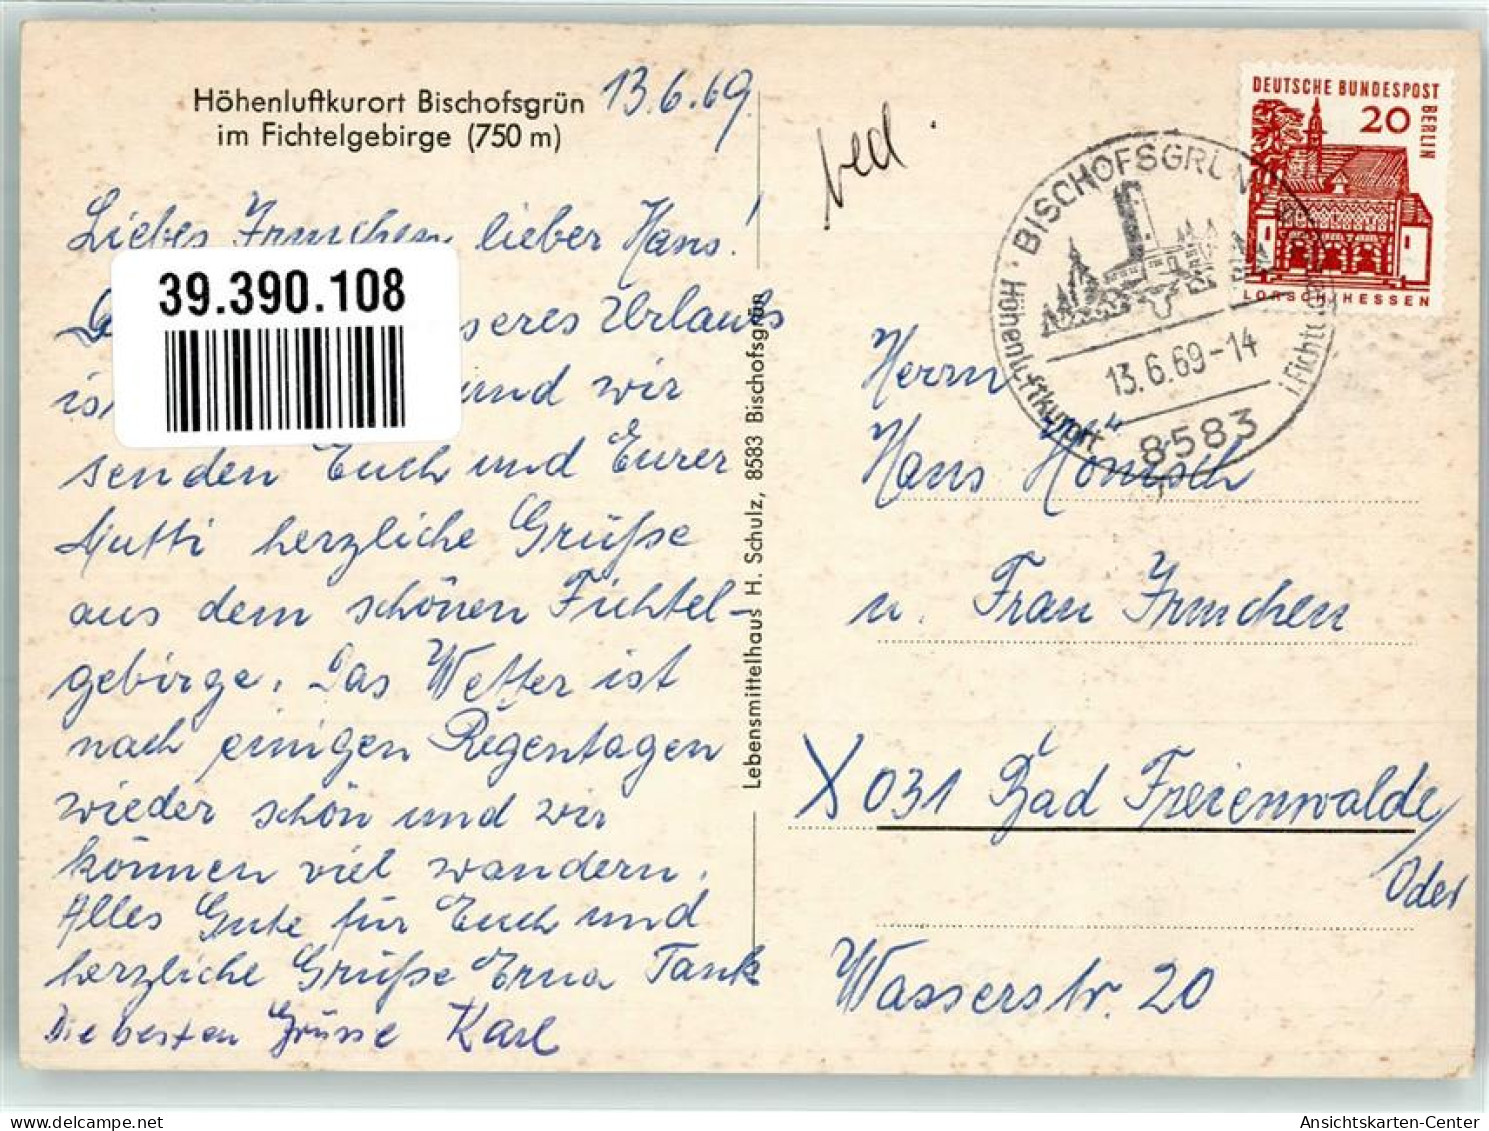 Höhenluftkurort Bischofsgrün
im Fichtelgebirge (750 m)
13.6.69
Liebes Irmchen, lieber Hans!
39.390.108
seres Urlaubs
is und wir
senden Euch und Eurer
Mutti herzliche Grüße
aus dem schönen Fichtel-
gebirge. Das Wetter ist
nach einigen Regentagen
wieder schön und wir
können viel wandern.
Alles Gute für Euch und
herzliche Grüße Erna Tank
Die besten Grüsse Karl
Lebensmittelhaus H. Schulz, 8583 Bischofsgrün
DEUTSCHE BUNDESPOST
BERLIN
20
LORSCH/HESSEN
BISCHOFSGRÜN
Höhenluftkurort
i. Fichtel
13.6.69-14
8583
Herrn
Hans
u. Frau Irmchen
X 031 Bad Freienwalde/
Oder
Wasserstr. 20
delcampe.net
Ansichtskarten-Center